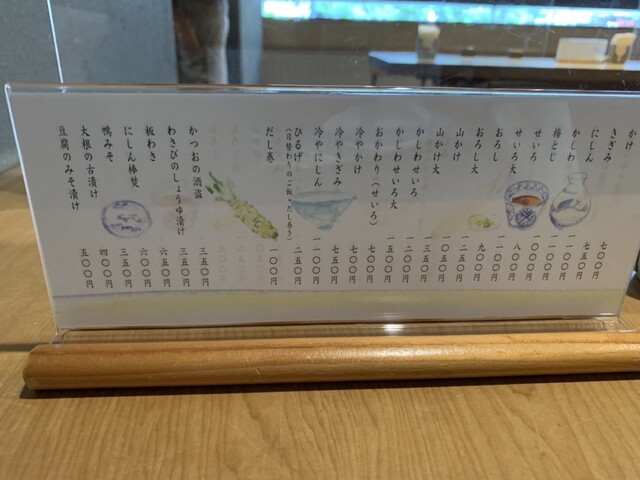 かけ 七〇〇円
きざみ 七五〇円
にしん 一一〇〇円
かしわ 一一〇〇円
梅とじ 一〇〇〇円
せいろ 八〇〇円
せいろ大 一一〇〇円
おろし 九〇〇円
おろし大 一二五〇円
山かけ 一〇五〇円
山かけ大 一三五〇円
かしわせいろ
かしわせいろ大 一五〇〇円
おかわり(せいろ) 七〇〇円
冷やかけ 七〇〇円
冷やきざみ 七五〇円
冷やにしん 一一〇〇円
ひるげ 一二五〇円
(日替わりのご飯・だし巻き)
だし巻
かつおの酒盗 三五〇円
わさびのしょうゆ漬け 三五〇円
板わさ 六五〇円
にしん棒焚 六〇〇円
鴨みそ 三五〇円
大根の古漬け 四〇〇円
豆腐のみそ漬け 五〇〇円